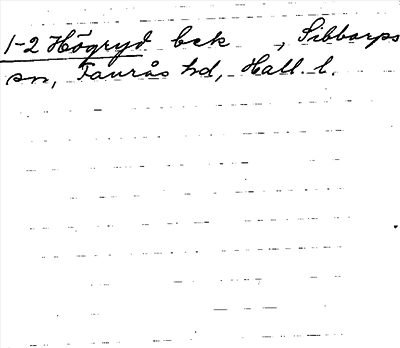 1-2 Högryd bck , Sibbarps
sn, Faurås hd, Hall. l.